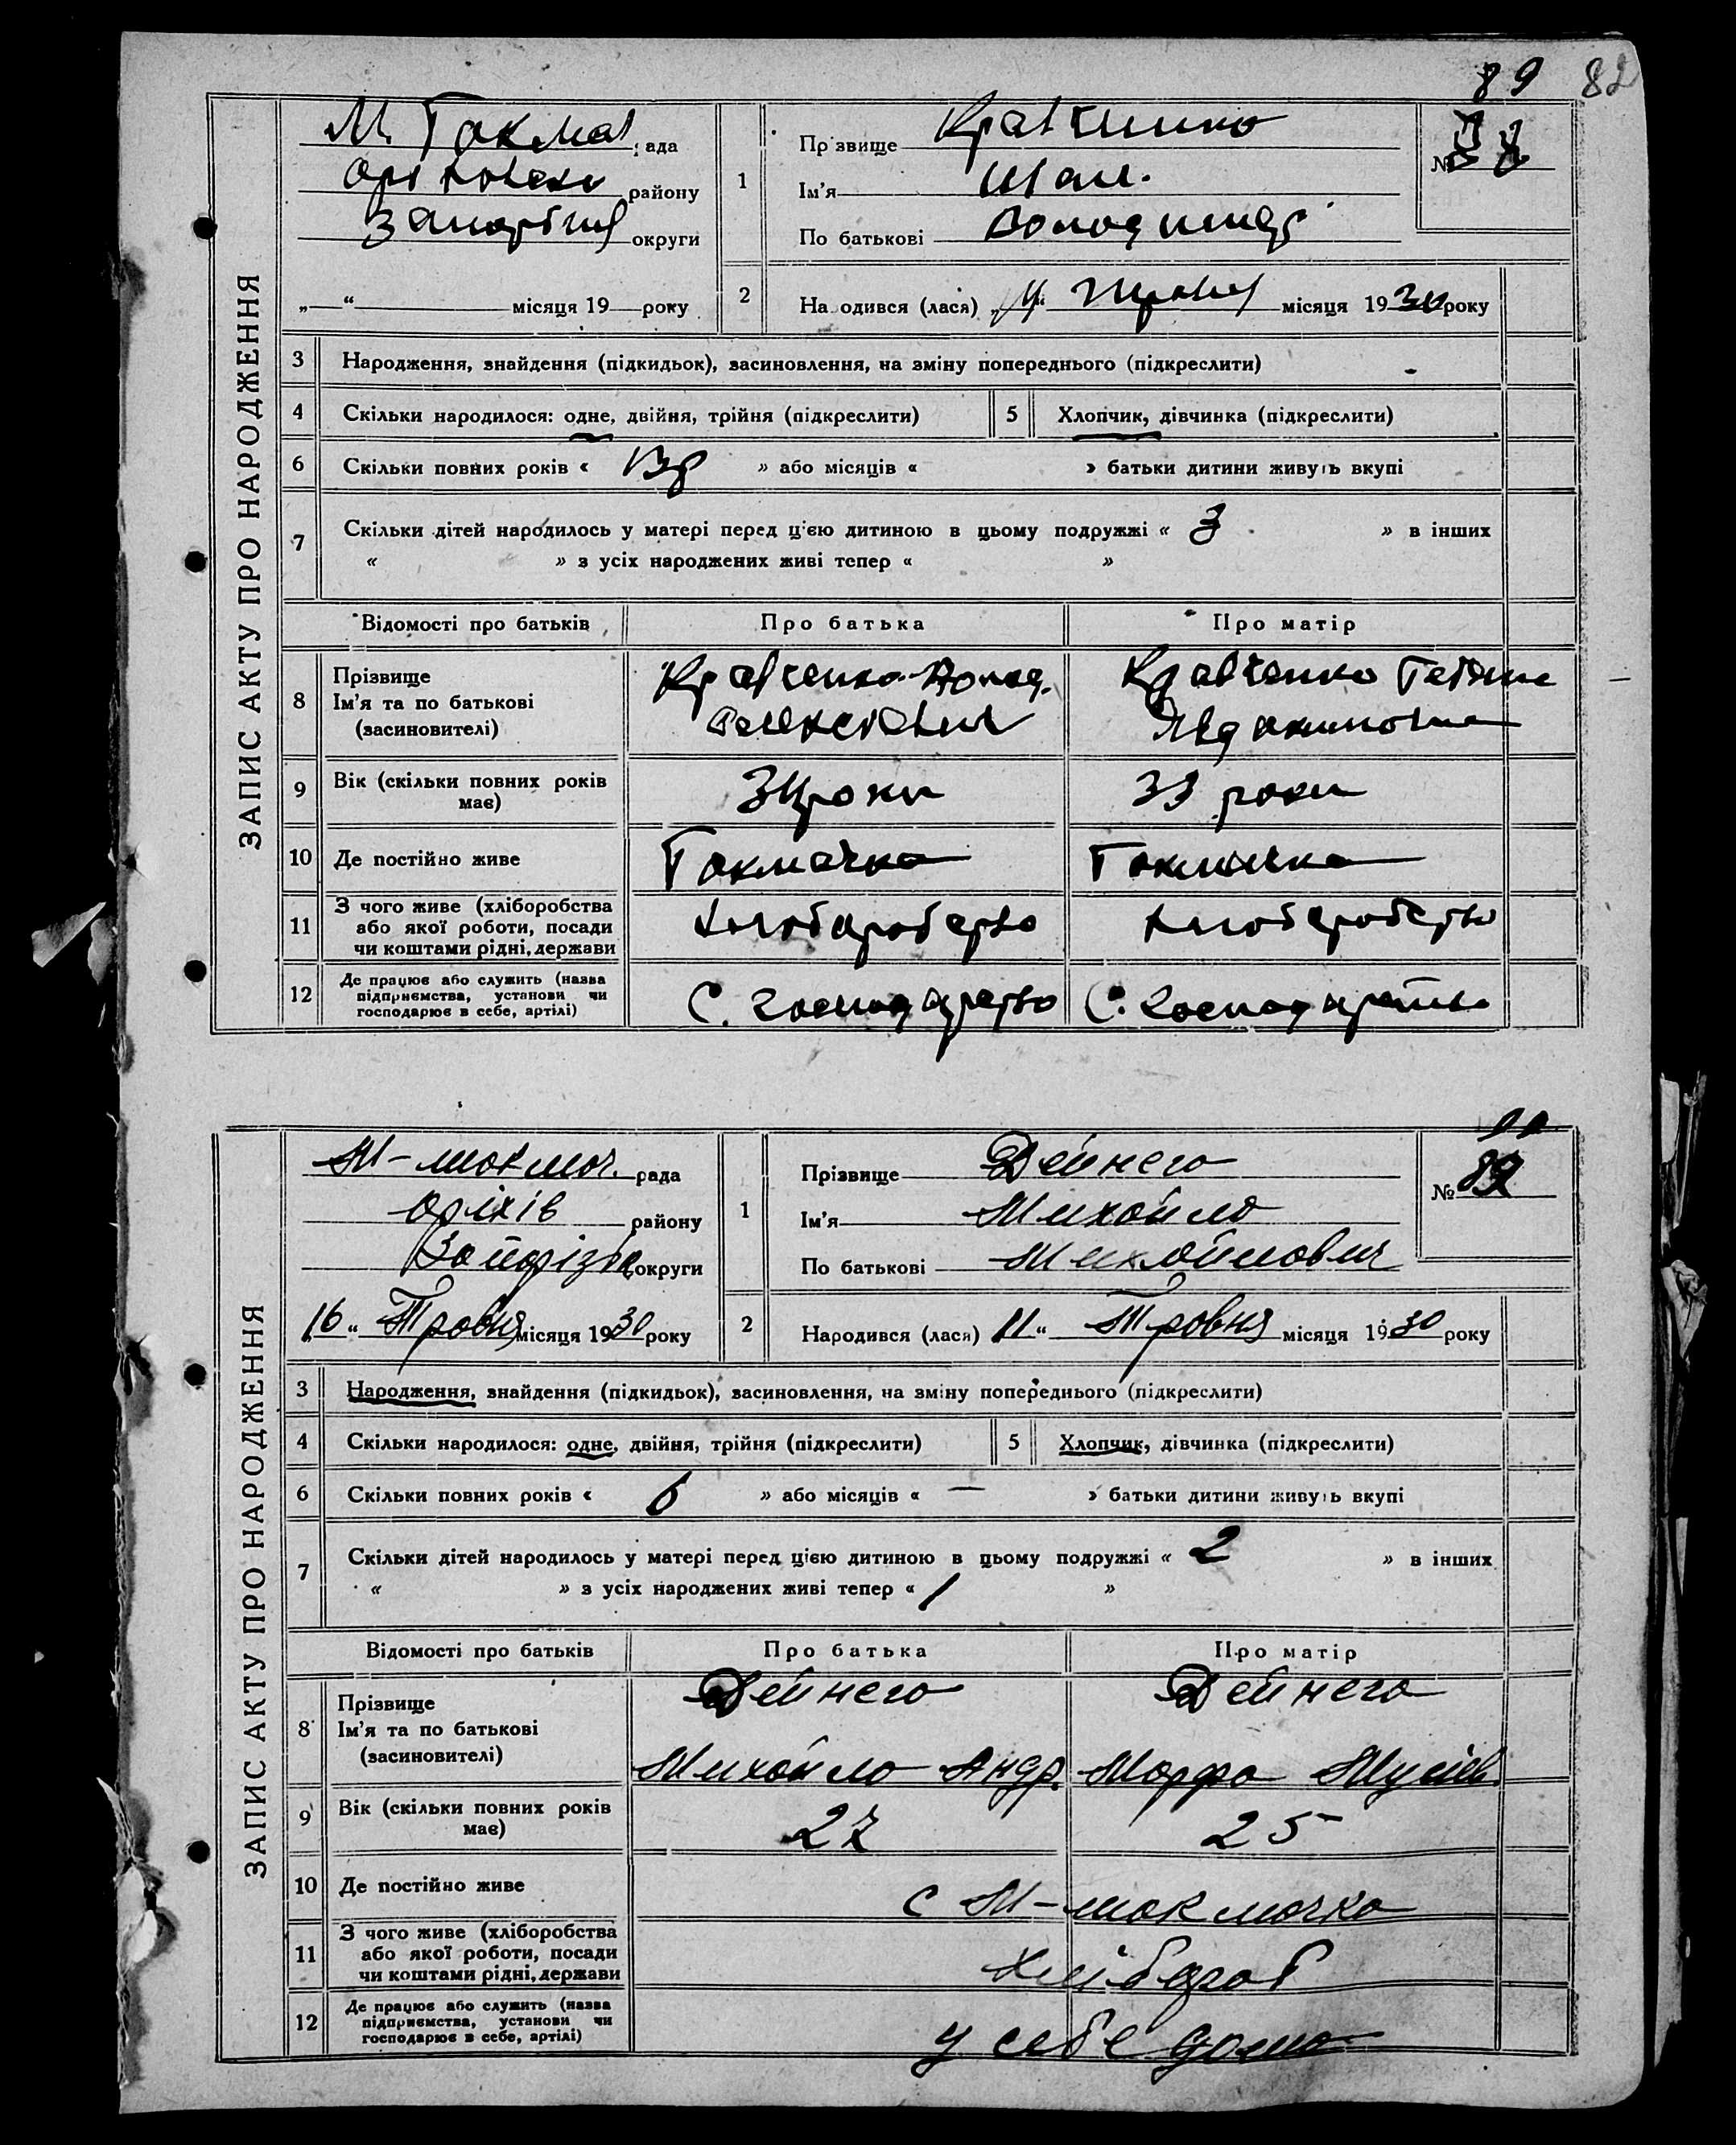 89 82
ЗАПИС АКТУ ПРО НАРОДЖЕННЯ
М. Токмач рада
Оріхівськ району
Запоріжж округи
„—“ місяця 19 року
1 Прізвище Кравченко
Ім'я
По батькові Володимир
№
2 Народився (лася) Травня місяця 1930 року
3 Народження, знайдення (підкидьок), засиновлення, на зміну попереднього (підкреслити)
4 Скільки народилося: одне, двійня, трійня (підкреслити) 5 Хлопчик, дівчинка (підкреслити)
6 Скільки повних років « 13р » або місяців « » батьки дитини живуть вкупі
7 Скільки дітей народилось у матері перед цією дитиною в цьому подружжі « 3 » в інших
« » з усіх народжених живі тепер « »
Відомості про батьків Про батька Про матір
8 Прізвище Ім'я та по батькові (засиновителі) Кравченко Волод. Олексієвич Кравченко Тетяна Явдокимовна
9 Вік (скільки повних років має) 34 роки 33 роки
10 Де постійно живе Токмачка Токмачка
11 З чого живе (хліборобства або якої роботи, посади чи коштами рідні, держави Хліборобство Хліборобство
12 Де працює або служить (назва підприємства, установи чи господарює в себе, артілі) С. господарство С. господарство
ЗАПИС АКТУ ПРО НАРОДЖЕННЯ
М-Токмач. рада
Оріхів району
Запоріз округи
16 “ Травня місяця 1930 року
1 Прізвище Дейнега
Ім'я Михайло
По батькові Михайлович
№
2 Народився (лася) 11 “ Травня місяця 1930 року
3 Народження, знайдення (підкидьок), засиновлення, на зміну попереднього (підкреслити)
4 Скільки народилося: одне, двійня, трійня (підкреслити) 5 Хлопчик, дівчинка (підкреслити)
6 Скільки повних років « 6 » або місяців « — » батьки дитини живуть вкупі
7 Скільки дітей народилось у матері перед цією дитиною в цьому подружжі « 2 » в інших
« » з усіх народжених живі тепер « 1 »
Відомості про батьків Про батька Про матір
8 Прізвище Ім'я та по батькові (засиновителі) Дейнега Михайло Андр. Дейнега Марфа Мусіев.
9 Вік (скільки повних років має) 27 25
10 Де постійно живе с М-Токмачка
11 З чого живе (хліборобства або якої роботи, посади чи коштами рідні, держави Хлібороб
12 Де працює або служить (назва підприємства, установи чи господарює в себе, артілі) у себе дома